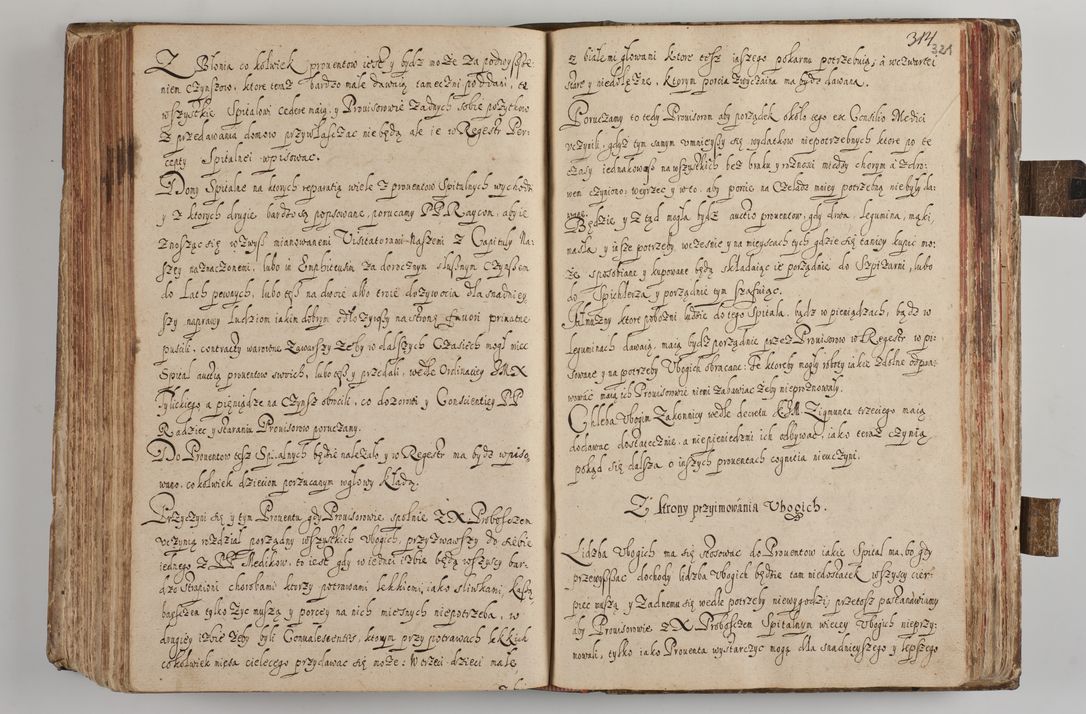 Z Błonia co kolwiek prouentow iest y bydz może za podwyssze-
niem czynszow, ktore teraz bardzo małe dawaią tameczni poddani, te
wszystkie Spitalowi cedere maią, y Prouisorowie żadnych sobie pożytkow
z przedawania domow przywłaszczac nie będą ale ie w Regestr Per-
cepty Spitalnei wpisowac.
Domy Spitalne na ktorych reparatią wiele z prouentow Spitalnych wychodzi
y z ktorych drugie bardzo są popsowane, porucamy PP Raycom, aby ie
znosząc się w zwysz mianowanemi Visitatorami Naszemi z Capituły Na-
szey naznaczonemi, lubo in Emphiteusin za dorocznym słusznym czynszem
do Lath pewnych, lubo też na dwoie albo troie dożywocia dla snadniey
szy naprawy ludziom iakim dobrym odłożywszy na stronę fauori priuatne
puścili, contracty warowne zawarszy żeby w dalszych czasiech mogł miec
Spital auctią prouentow swoich, lubo też y przedali, wedle Ordinaciey JMX
Tylickiego a pieniądze na czynsz obrocili, co dozorowi y Conscientiey PP
Radziec y staraniu Prouisorow poruczamy.
Do Prouentow tesz Spitalnych będzie należało y w Regestr ma bydz wpiso-
wano, co kolwiek dzieciom porzucanym w głowy kładą.
Przyczyni się y tym Prouentu gdy Prouisorowie spolnie z X Proboszczem
vczynią rozdział porządny wszystkich Vbogich, przyzwawszy do siebie
iednego z PP Medikow, to iest gdy w iednei izbie będą wszyscy bar-
dzo strapieni chorobami ktorzy potrawami lekkiemi, iako sliwkami, kaszą
barszczem tylko życ muszą y porcey na nich miesnych niepotrzeba, w
drugiey izbie żeby byli Conualescentes, ktorym przy potrawach lekkich
co kolwiek mięsa cielęcego przydawac się może: W trzeci dzieci małe
314
321
z białemi głowami ktore tesz inszego pokarmu potrzebuią, a w czwartei
stare y niedołężne, ktorym porcia zwyczaina ma bydz dawana.
Poruczamy to tedy Prouisorom aby porządek około tego ex Consilio Medici
vczynili, gdyż tym samym vmnieyszy się wydatkow niepotrzebnych ktore po te
czasy iednakowosz na wszystkich bez braku y rożności między chorym a zdro-
wem czyniono; weyrzec y w to, aby porcie na Czeladz mniey potrzebną nie były da-
wane.
Będzie y z tąd mogła bydz auctio prouentow, gdy drwa, legumina, mąki,
masła y insze potrzeby, wczesnie y na mieyscach tych gdzie się taniey kupic mo-
że sposobiane y kupowane będą składaiąc ie porządnie do Szpiżarni, lubo
do Spichlerza, y porządnie tym szafuiąc.
Jałmużny ktore pobożni ludzie do tego Spitala, bądz w pieniądzach, bądz w
leguminach dawaią, maią bydz porządnie przez Prouisorow w Regestr w pi-
sowane y na potrzeby Vbogich obracane: Te ktoreby mogły roboty iakie zdolne odpra-
wowac maią ich Prouisorowie niemi zabawiac żeby nieprożnowały.
Chleba Vbogim Zakonnicy wedle decretu KJM. Zigmunta trzeciego maią
dodawac dostatecznie, a nie pieniedzmi ich odbywac, iako teraz czynią
pokąd się dalsza o inszych prouentach cognitia nieuczyni.
Z strony przyimowánia Vbogich.
Liczba Vbogich ma się stosowac do Prouentow iakie Spital ma, bo gdy
przewyssac dochody liczba Vbogich będzie tam niedostatek wszyscy cier-
piec muszą y żadnemu się wedle potrzeby niewygodzi; przetosz postanawiamy
aby Prouisorowie z X Proboszczem Spitalnym wiecey Vbogich nieprzy-
mowali, tylko iako Prouenta wystarczyc mogą dla snadnieyszego y lepszego